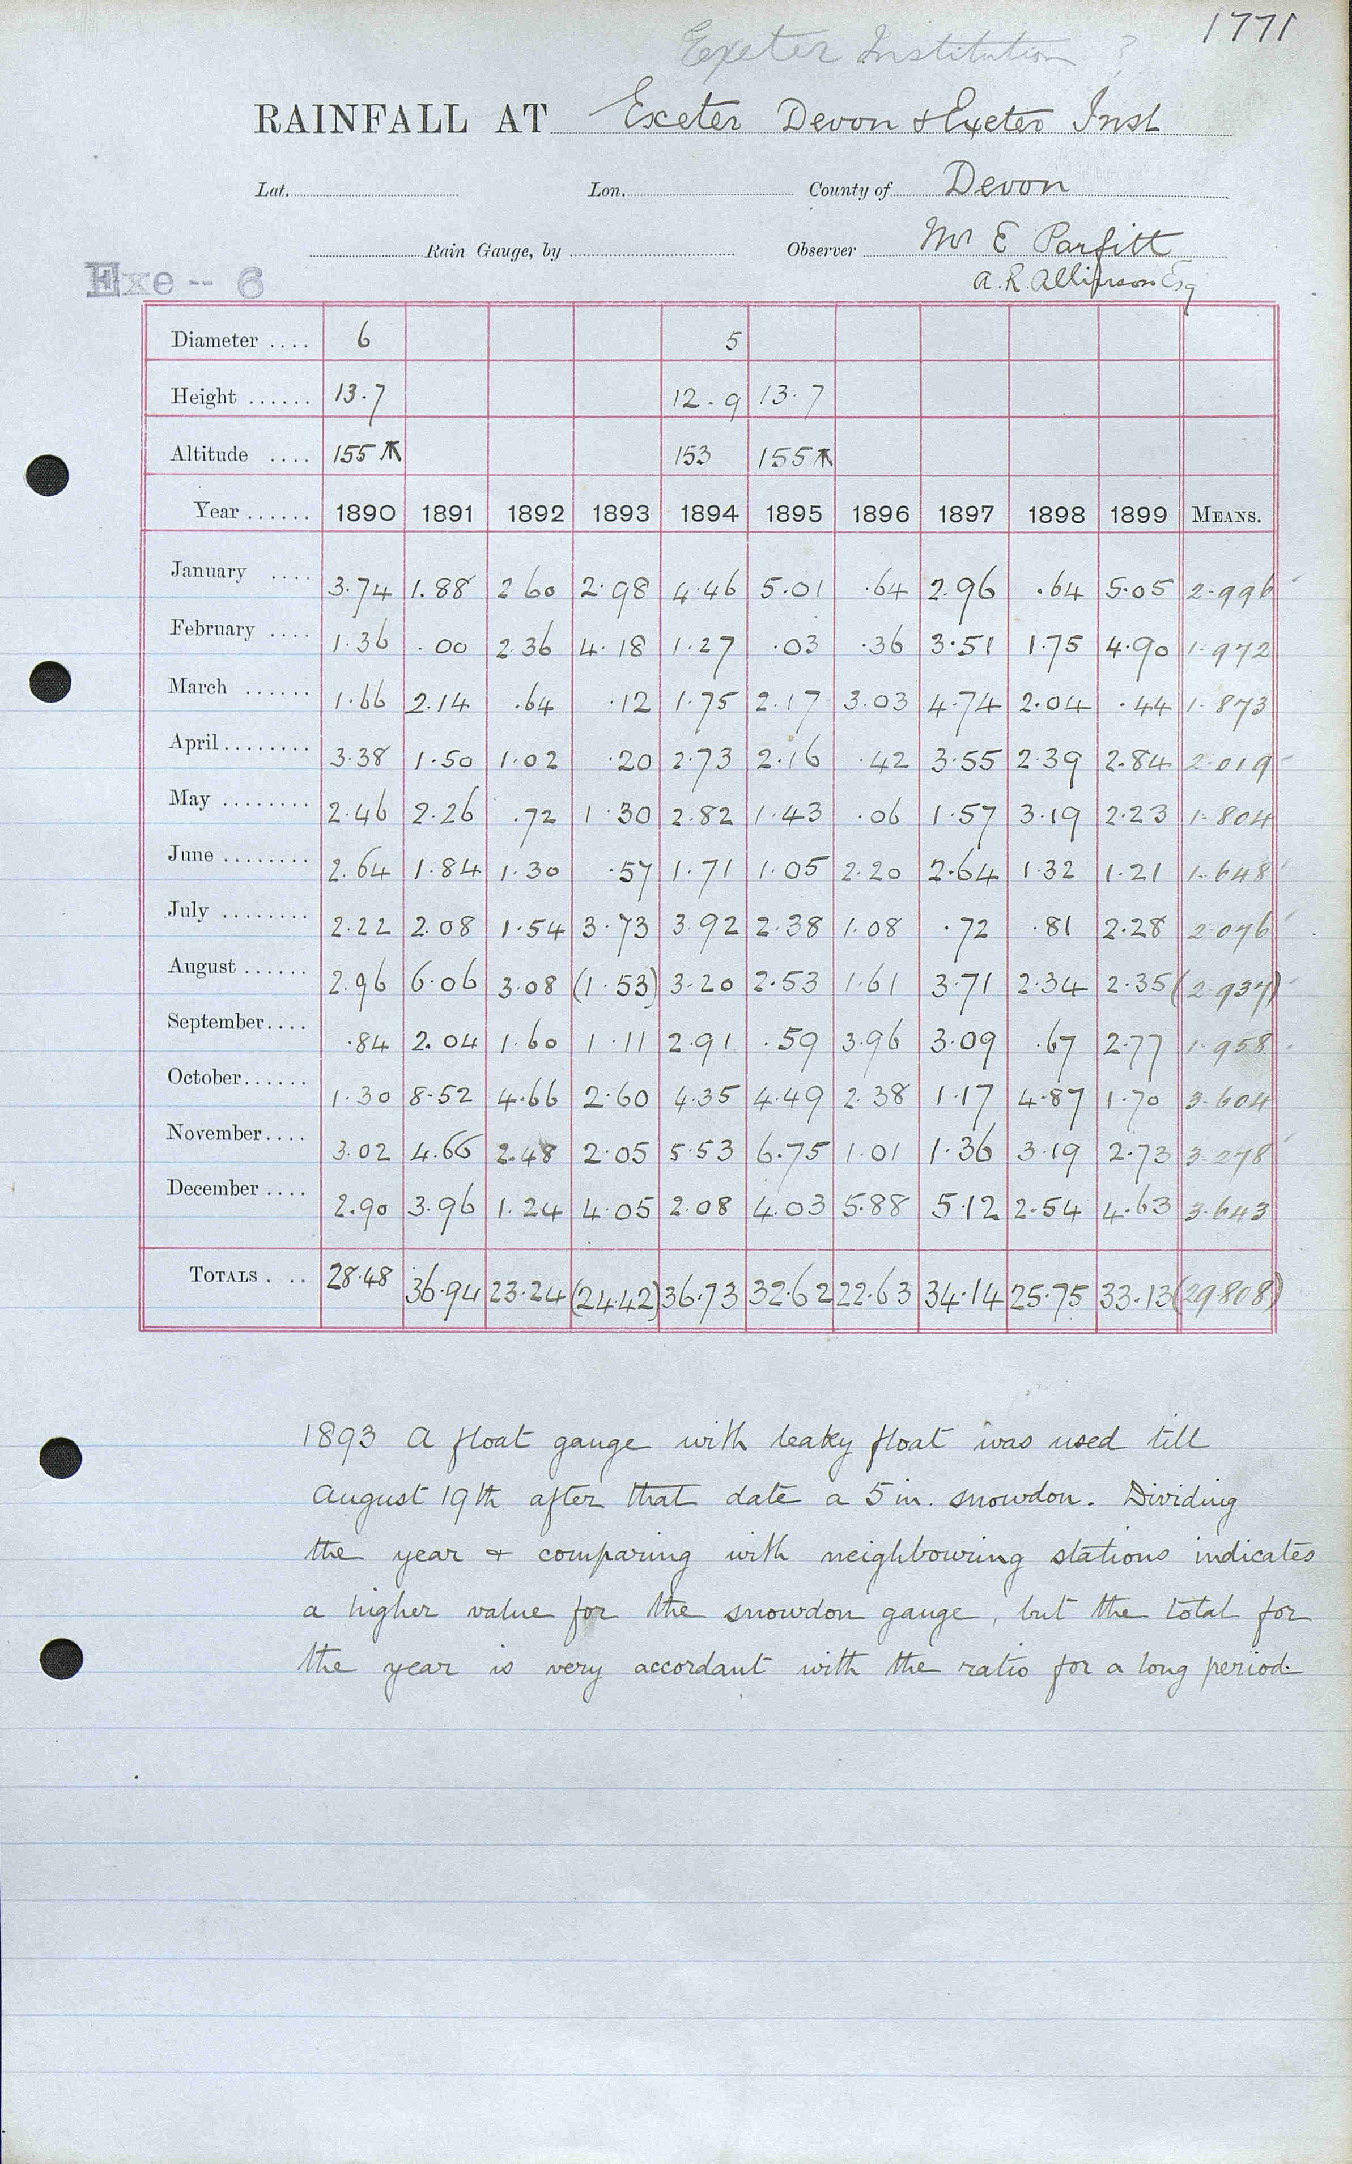 1771
Exeter Institution ?
RAINFALL AT Exeter Devon & Exeter Inst
Lat. Lon. County of Devon
Rain Gauge, by Observer Mr E Parfitt
Exe -- 6
A. R. Allinson Esq
Diameter .... 6 5
Height ...... 13.7 12.9 13.7
Altitude .... 155 153 155
Year ...... 1890 1891 1892 1893 1894 1895 1896 1897 1898 1899 MEANS.
January .... 3.74 1.88 2.60 2.98 4.46 5.01 .64 2.96 .64 5.05 2.996
February .... 1.36 .00 2.36 4.18 1.27 .03 .36 3.51 1.75 4.90 1.972
March ...... 1.66 2.14 .64 .12 1.75 2.17 3.03 4.74 2.04 .44 1.873
April ........ 3.38 1.50 1.02 .20 2.73 2.16 .42 3.55 2.39 2.84 2.019
May ........ 2.46 2.26 .72 1.30 2.82 1.43 .06 1.57 3.19 2.23 1.804
June ........ 2.64 1.84 1.30 .57 1.71 1.05 2.20 2.64 1.32 1.21 1.648
July ........ 2.22 2.08 1.54 3.73 3.92 2.38 1.08 .72 .81 2.28 2.076
August ...... 2.96 6.06 3.08 (1.53) 3.20 2.53 1.61 3.71 2.34 2.35 (2.937)
September.... .84 2.04 1.60 1.11 2.91 .59 3.96 3.09 .67 2.77 1.958
October...... 1.30 8.52 4.66 2.60 4.35 4.49 2.38 1.17 4.87 1.70 3.604
November.... 3.02 4.66 2.48 2.05 5.53 6.75 1.01 1.36 3.19 2.73 3.278
December .... 2.90 3.96 1.24 4.05 2.08 4.03 5.88 5.12 2.54 4.63 3.643
TOTALS . .. 28.48 36.94 23.24 (24.42) 36.73 32.62 22.63 34.14 25.75 33.13 (29.808)
1893 A float gauge with leaky float was used till
August 19th after that date a 5 in. snowdon. Dividing
the year & comparing with neighbouring stations indicates
a higher value for the snowdon gauge, but the total for
the year is very accordant with the ratio for a long period.